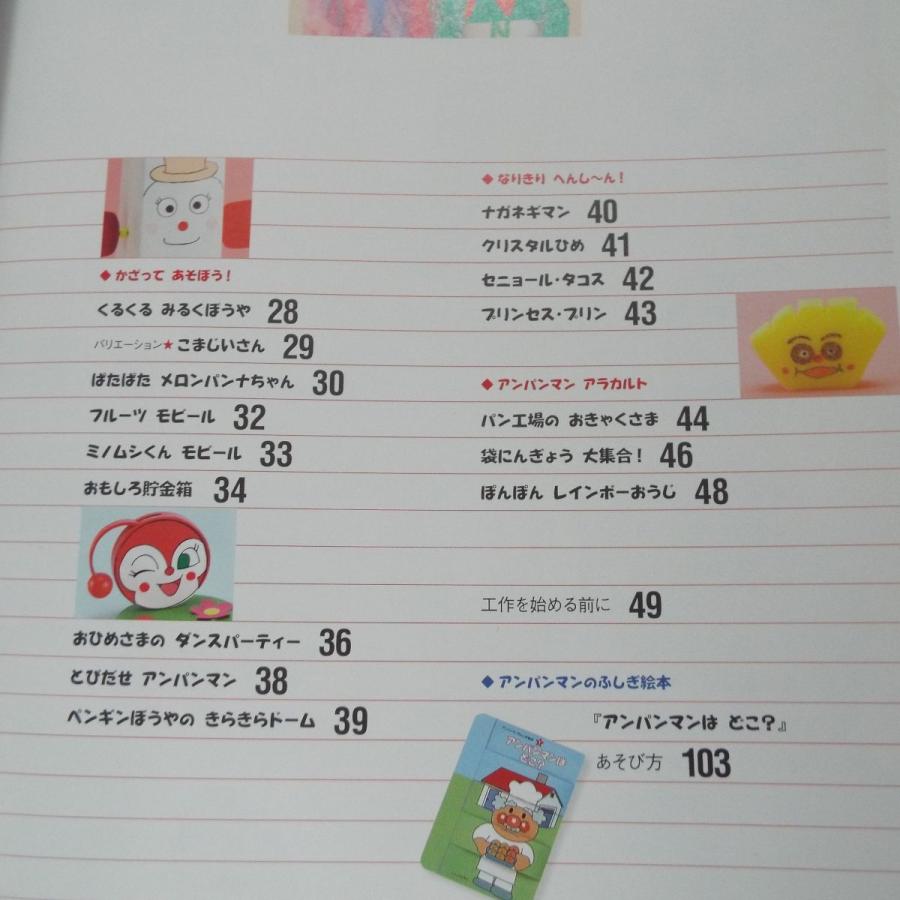 ◆かざって あそぼう!
くるくる みるくぼうや 28
バリエーション★こまじいさん 29
ぱたぱた メロンパンナちゃん 30
フルーツ モビール 32
ミノムシくん モビール 33
おもしろ貯金箱 34
おひめさまの ダンスパーティー 36
とびだせ アンパンマン 38
ペンギンぼうやの きらきらドーム 39
◆なりきり へんし〜ん!
ナガネギマン 40
クリスタルひめ 41
セニョール・タコス 42
プリンセス・プリン 43
◆アンパンマン アラカルト
パン工場の おきゃくさま 44
袋にんぎょう 大集合! 46
ぽんぽん レインボーおうじ 48
工作を始める前に 49
◆アンパンマンのふしぎ絵本
『アンパンマンは どこ?』
あそび方 103
アンパンマンは
どこ?